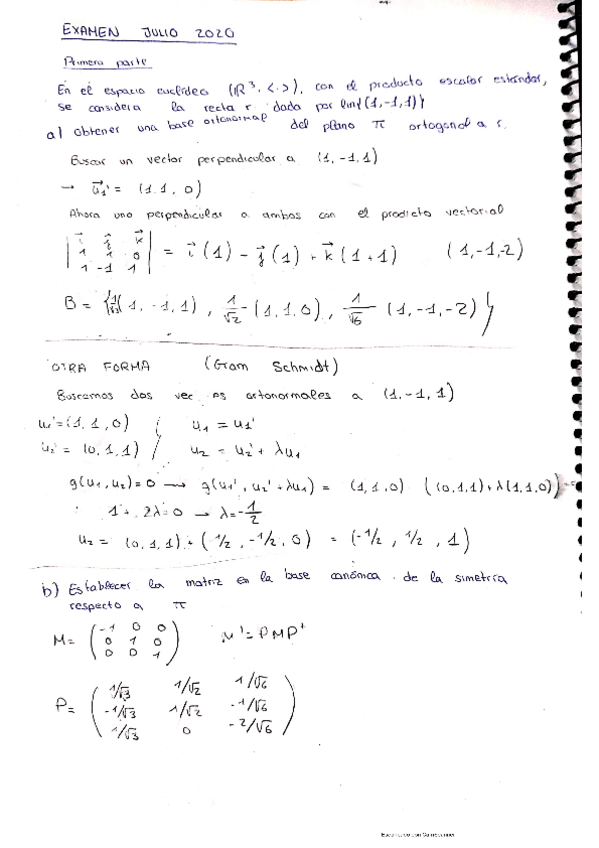 EXAMEN JULIO 2020
Primera parte
En el espacio euclídeo (ℝ³, <·>), con el producto escalar estándar,
se considera la recta r dada por lin{(1,-1,1)}
a) obtener una base ortonormal del plano π ortogonal a r.
Buscar un vector perpendicular a (1,-1,1)
→ u⃗₁' = (1,1,0)
Ahora uno perpendicular a ambos con el producto vectorial
| i⃗ j⃗ k⃗ |
| 1 1 0 | = i⃗(1) - j⃗(1) + k⃗(1+1) (1,-1,-2)
| 1 -1 1 |
B = {1/√3(1,-1,1), 1/√2(1,1,0), 1/√6(1,-1,-2)}
OTRA FORMA (Gram Schmidt)
Buscamos dos ortonormales a (1,-1,1)
u₁'=(1,1,0) { u₁ = u₁'
u₂'=(0,1,1) / u₂ = u₂' + λu₁
g(u₁,u₂)=0 → g(u₁', u₂'+λu₁) = (1,1,0) ((0,1,1)+λ(1,1,0))
1 + 2λ=0 → λ=-1/2
u₂ = (0,1,1) + (-1/2, -1/2, 0) = (-1/2, 1/2, 1)
b) Establecer la matriz en la base canónica de la simetría
respecto a π
M = (-1 0 0
0 1 0
0 0 1) M'=PMPᵗ
P = (1/√3 1/√2 1/√6
-1/√3 1/√2 -1/√6
1/√3 0 -2/√6)